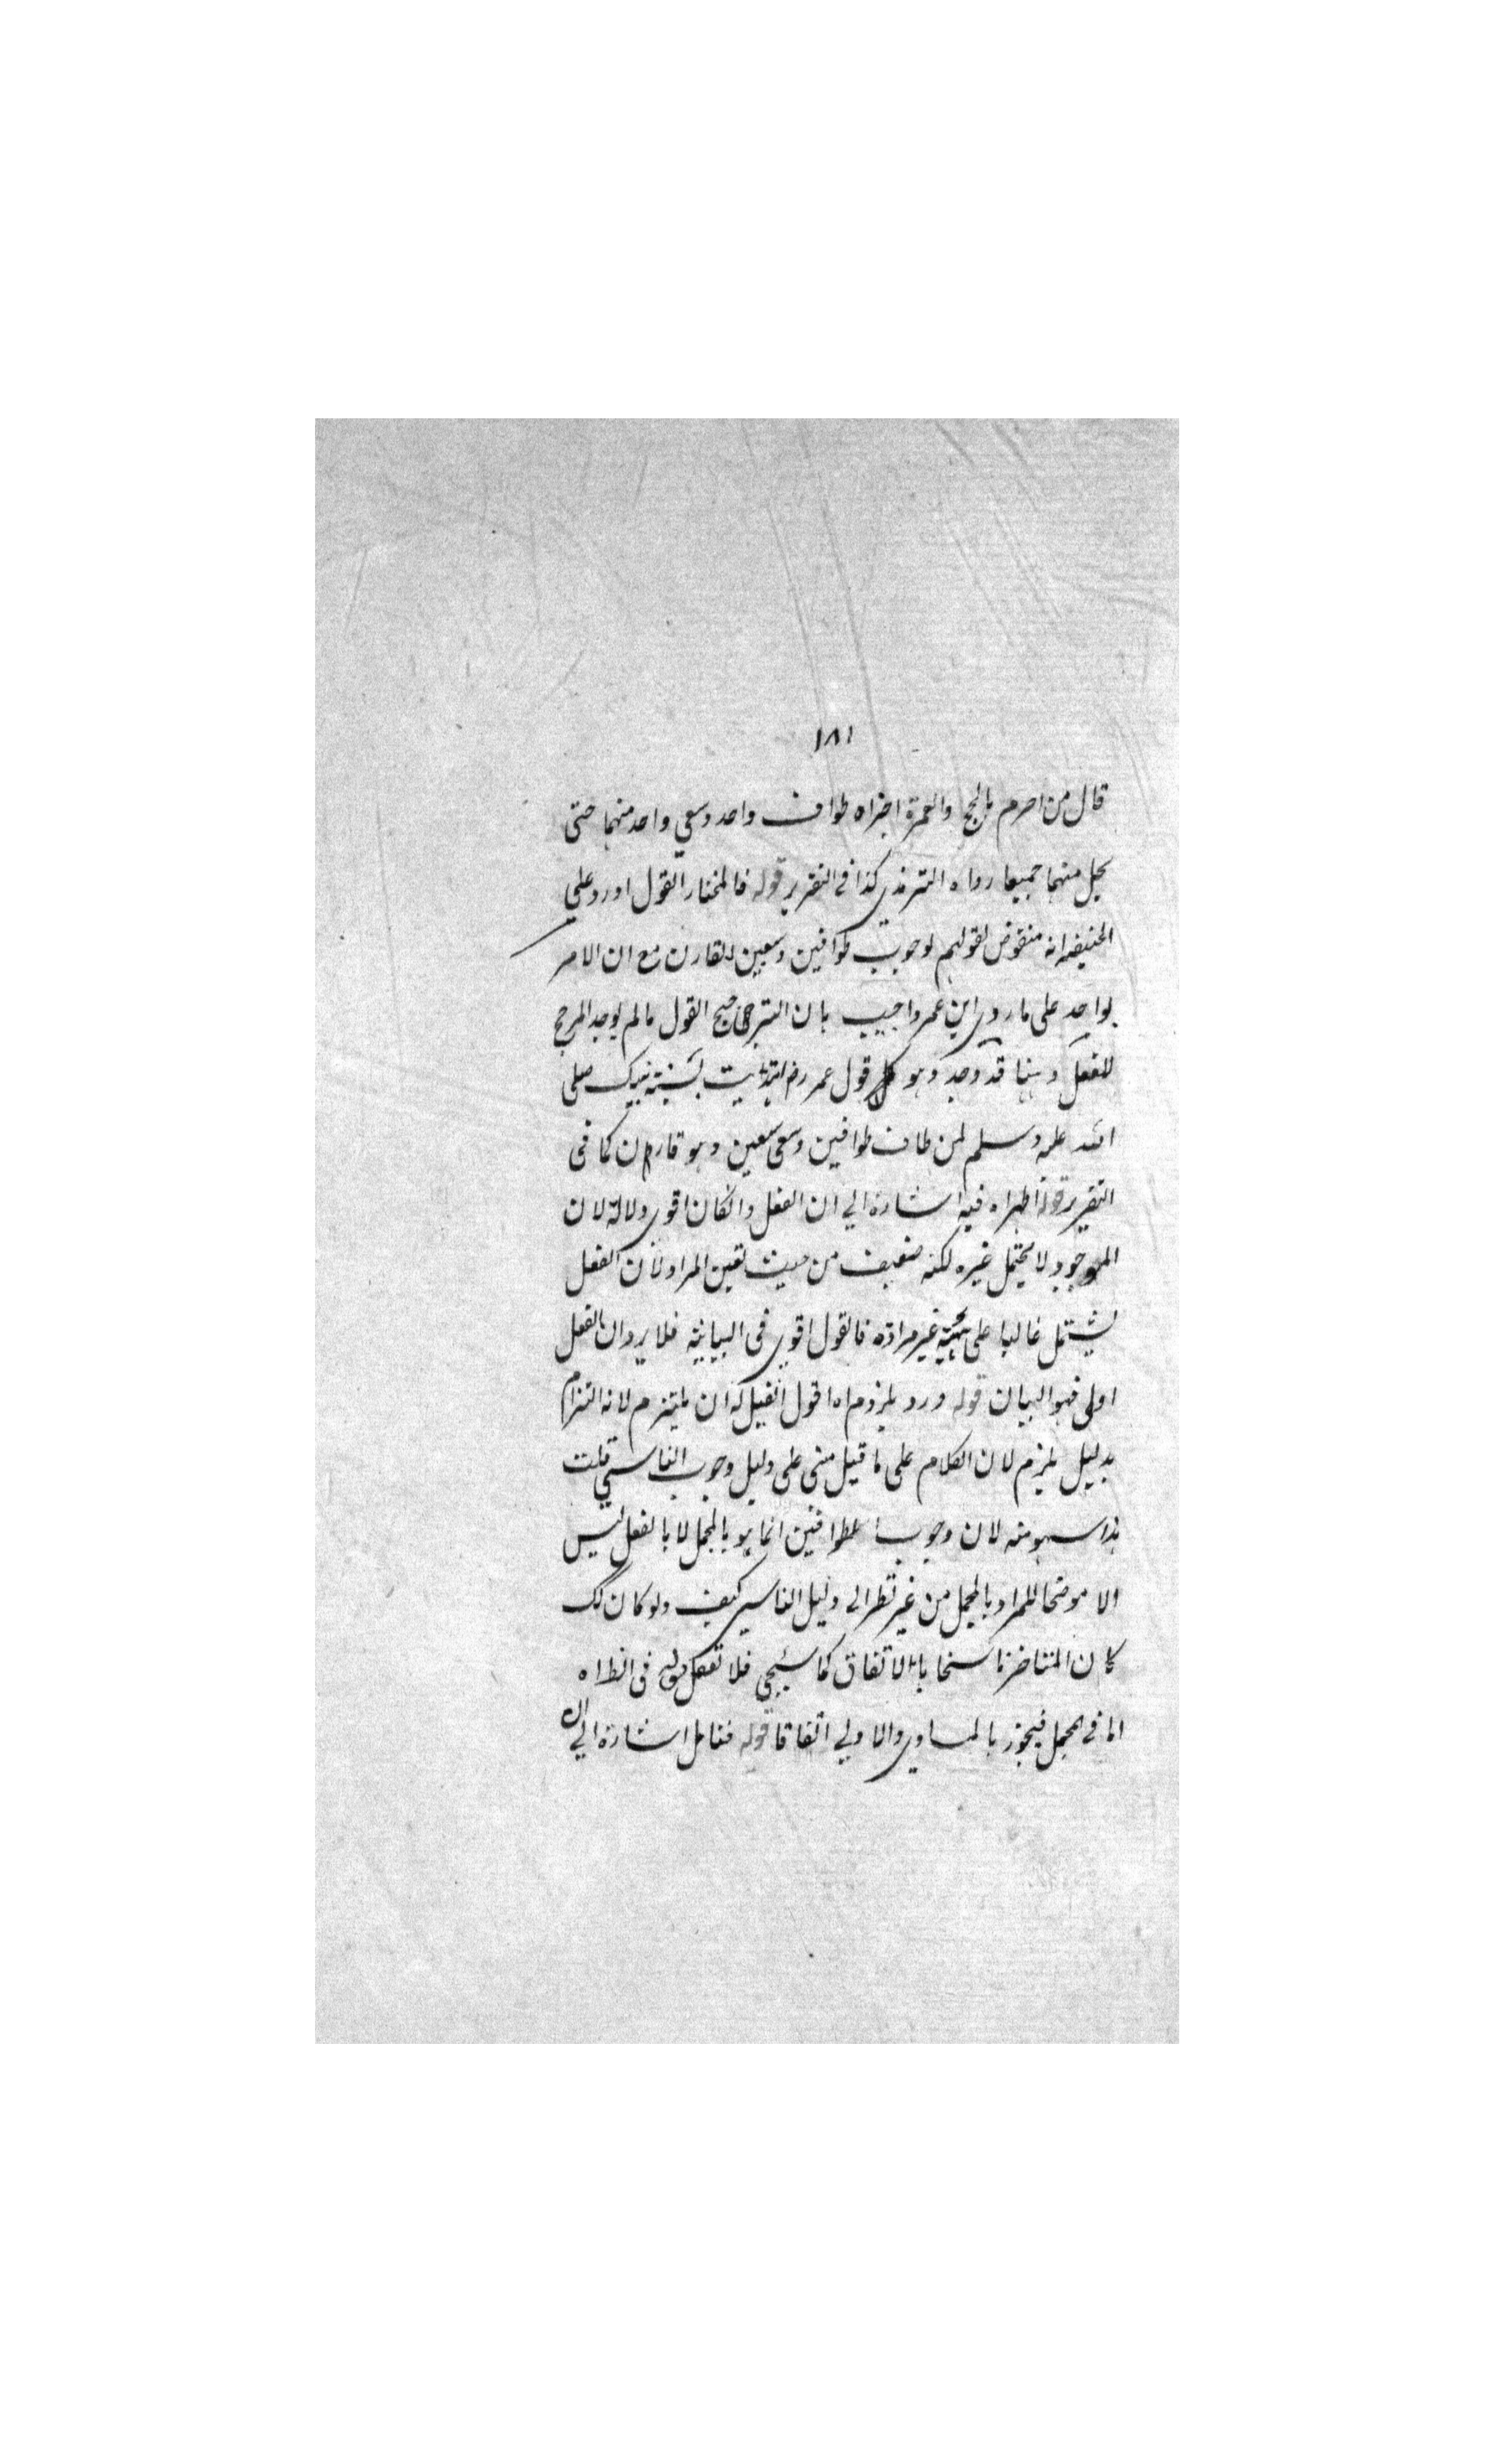 ١٨١
قال من احرم بالحج والعمرة اجزاه طواف واحد وسعي واحد منهما حتى
يحل منهما جميعا رواه الترمذي كذا في التقرير قوله فالمختار القول اورد علي
الحنيفه انه منقوض لقولهم لوجوب طوافين وسعيين للقارن مع ان الامر
بواحد على ما روي ابن عمر واجيب بان الترجيح القول مالم يوجد المرجح
للفعل وهنا قد وجد وهو قول عمر رض هديت لسنة نبيك صلى
الله عليه وسلم لمن طاف طوافين وسعى سعيين وهو قارن كما فى
التقرير قوله اظهر اه فيه اشارة الي ان الفعل وانكان اقوي دلالة لان
الموجود لا يحتمل غيره لكنه ضعيف من حيث تعين المراد لان الفعل
يشتمل غالبا على غير مرادة فالقول اقوي فى البيانية فلا يرد ان الفعل
اولى فهو البيان قوله ورد بلزوم اه اقول القيل له ان يلتزم لانه التزام
بدليل يلزم لان الكلام على ما قيل مبنى على دليل وجوب التاسي قلت
هذا سهو منه لان وجوب الطوافين انما هو بالمجمل لا بالفعل ليس
الا موضحا للمراد بالمجمل من غير نظر الى دليل التاسي كيف ولو كان كك
كان المتاخر ناسخا بالاتفاق كما سيجي فلا تغفل قوله فى الظاه
اما في المجمل فيجوز بالمساوي والاولي اتفاقا قوله فتامل اشارة الي ان